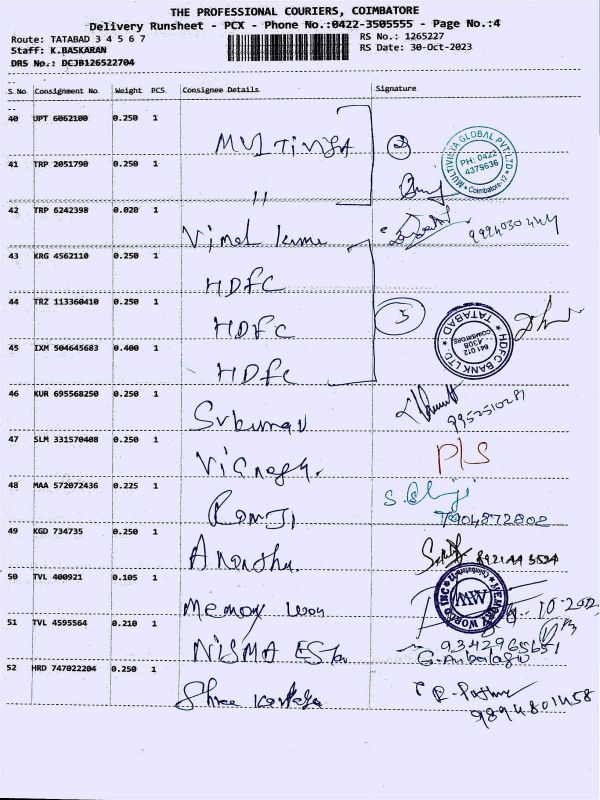 THE PROFESSIONAL COURIERS, COIMBATORE
Delivery Runsheet - PCX - Phone No.:0422-3505555 - Page No.:4
Route: TATABAD 3 4 5 6 7
RS No.: 1265227
Staff: K.BASKARAN
RS Date: 30-Oct-2023
DRS No.: DCJB126522704
S. No Consignment No. Weight PCS Consignee Details Signature
40 UPT 6062100 0.250 1 MULTIVISTA 2
MULTIVISTA GLOBAL PVT.LTD PH: 0422 4379636 Coimbatore-12
41 TRP 2051790 0.250 1 11
42 TRP 6242398 0.020 1 Vimal Kumar
43 KRG 4562110 0.250 1 HDFC
44 TRZ 113360410 0.250 1 HDFC 5
HDFC BANK LTD TATABAD COIMBATORE 641012 4308
45 IXM 504645683 0.400 1 HDFC
46 KUR 695568250 0.250 1 Srkumar 9952510281
47 SLM 331570408 0.250 1 Vignesh. P/S
48 MAA 572072436 0.225 1 RamJi 7904872802
49 KGD 734735 0.250 1 Anantha.
50 TVL 400921 0.105 1 Memory Worx
MEMORY WORXO INC Coimbatore MW
51 TVL 4595564 0.210 1 NISMA 9342965651
G. Anbalagan
52 HRD 747022204 0.250 1 Shree 9894801458